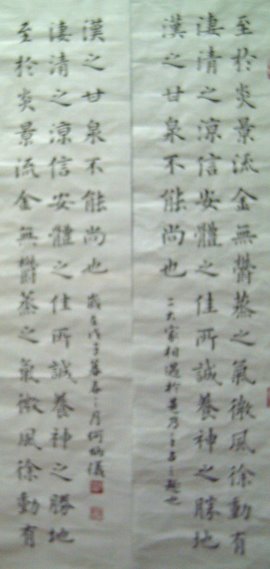 至於炎景流金無鬱蒸之氣微風徐動有
淒清之涼信安體之佳所誠養神之勝地
漢之甘泉不能尚也
至於炎景流金無鬱蒸之氣微風徐動有
淒清之涼信安體之佳所誠養神之勝地
漢之甘泉不能尚也
歲在戊子